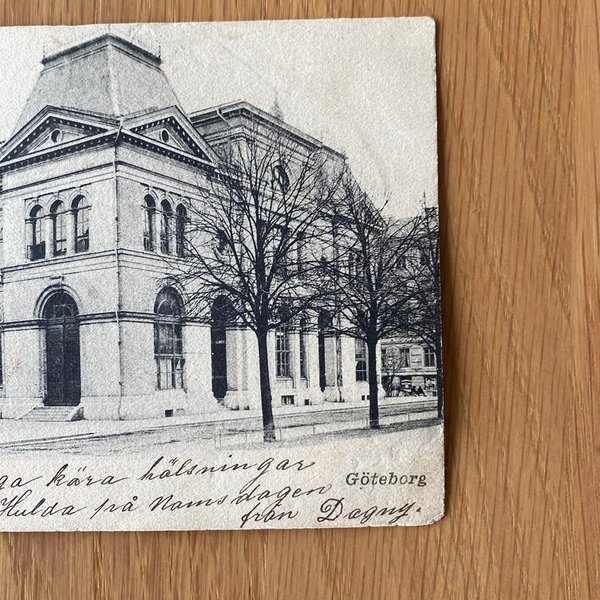 ga kära hälsningar
Göteborg
Hulda på Namsdagen
från Dagny.